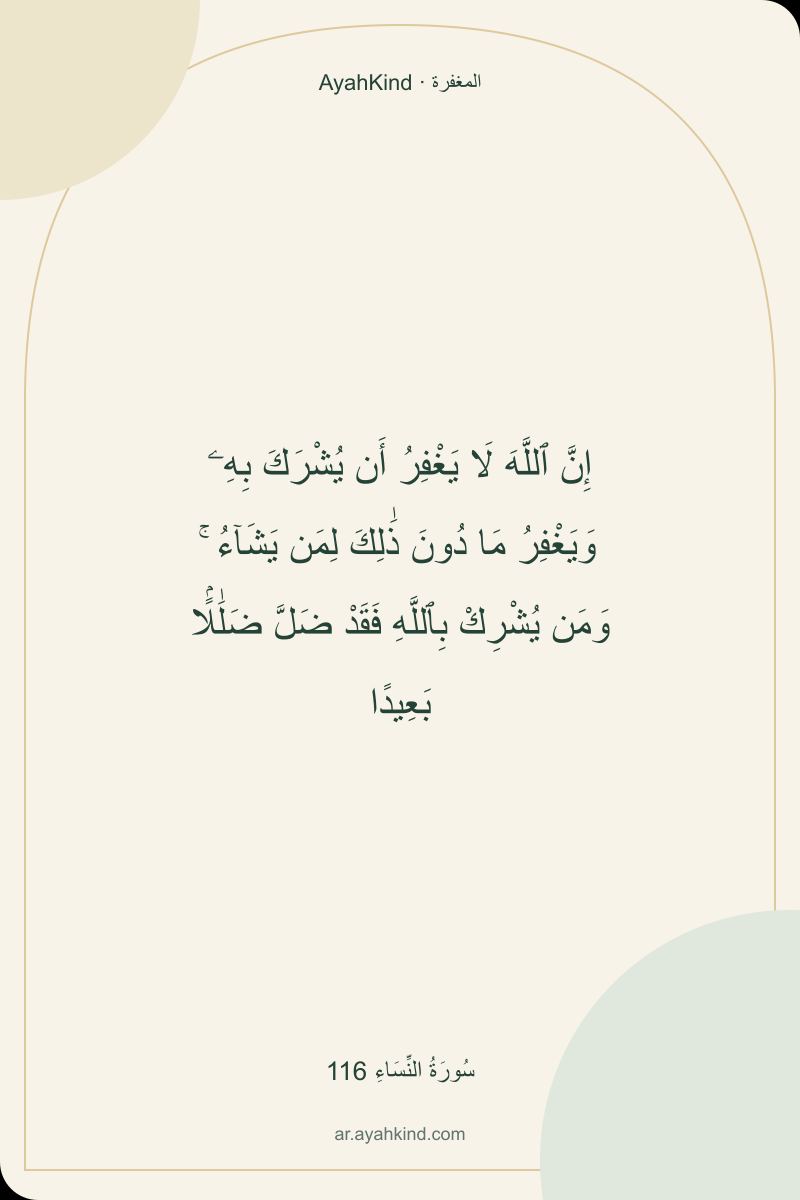 AyahKind · المغفرة
إِنَّ ٱللَّهَ لَا يَغْفِرُ أَن يُشْرَكَ بِهِۦ
وَيَغْفِرُ مَا دُونَ ذَٰلِكَ لِمَن يَشَآءُ ۚ
وَمَن يُشْرِكْ بِٱللَّهِ فَقَدْ ضَلَّ ضَلَٰلًۢا
بَعِيدًا
سُورَةُ النِّسَاءِ 116
ar.ayahkind.com